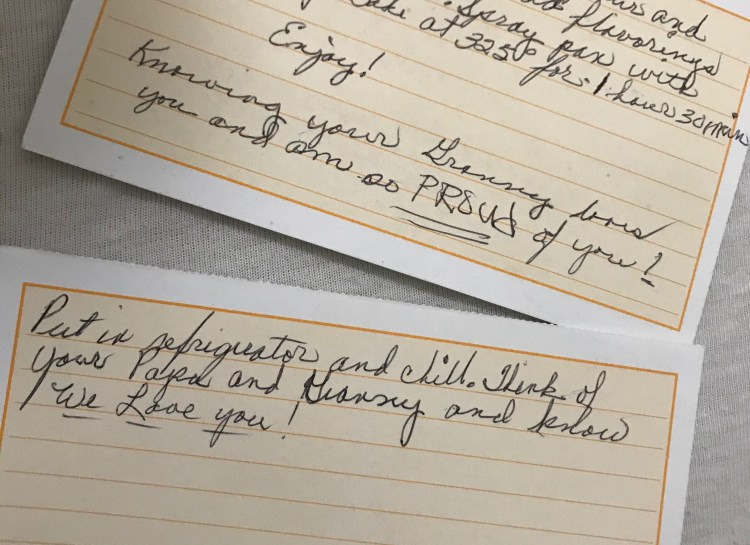 and
flavorings
Spray pan with
Bake at 325° for 1 hour 30 min
Enjoy!
Knowing your Granny loves
you and am so PROUD of you!
Put in refriguator and chill. Think of
your Papa and Granny and know
We Love you!